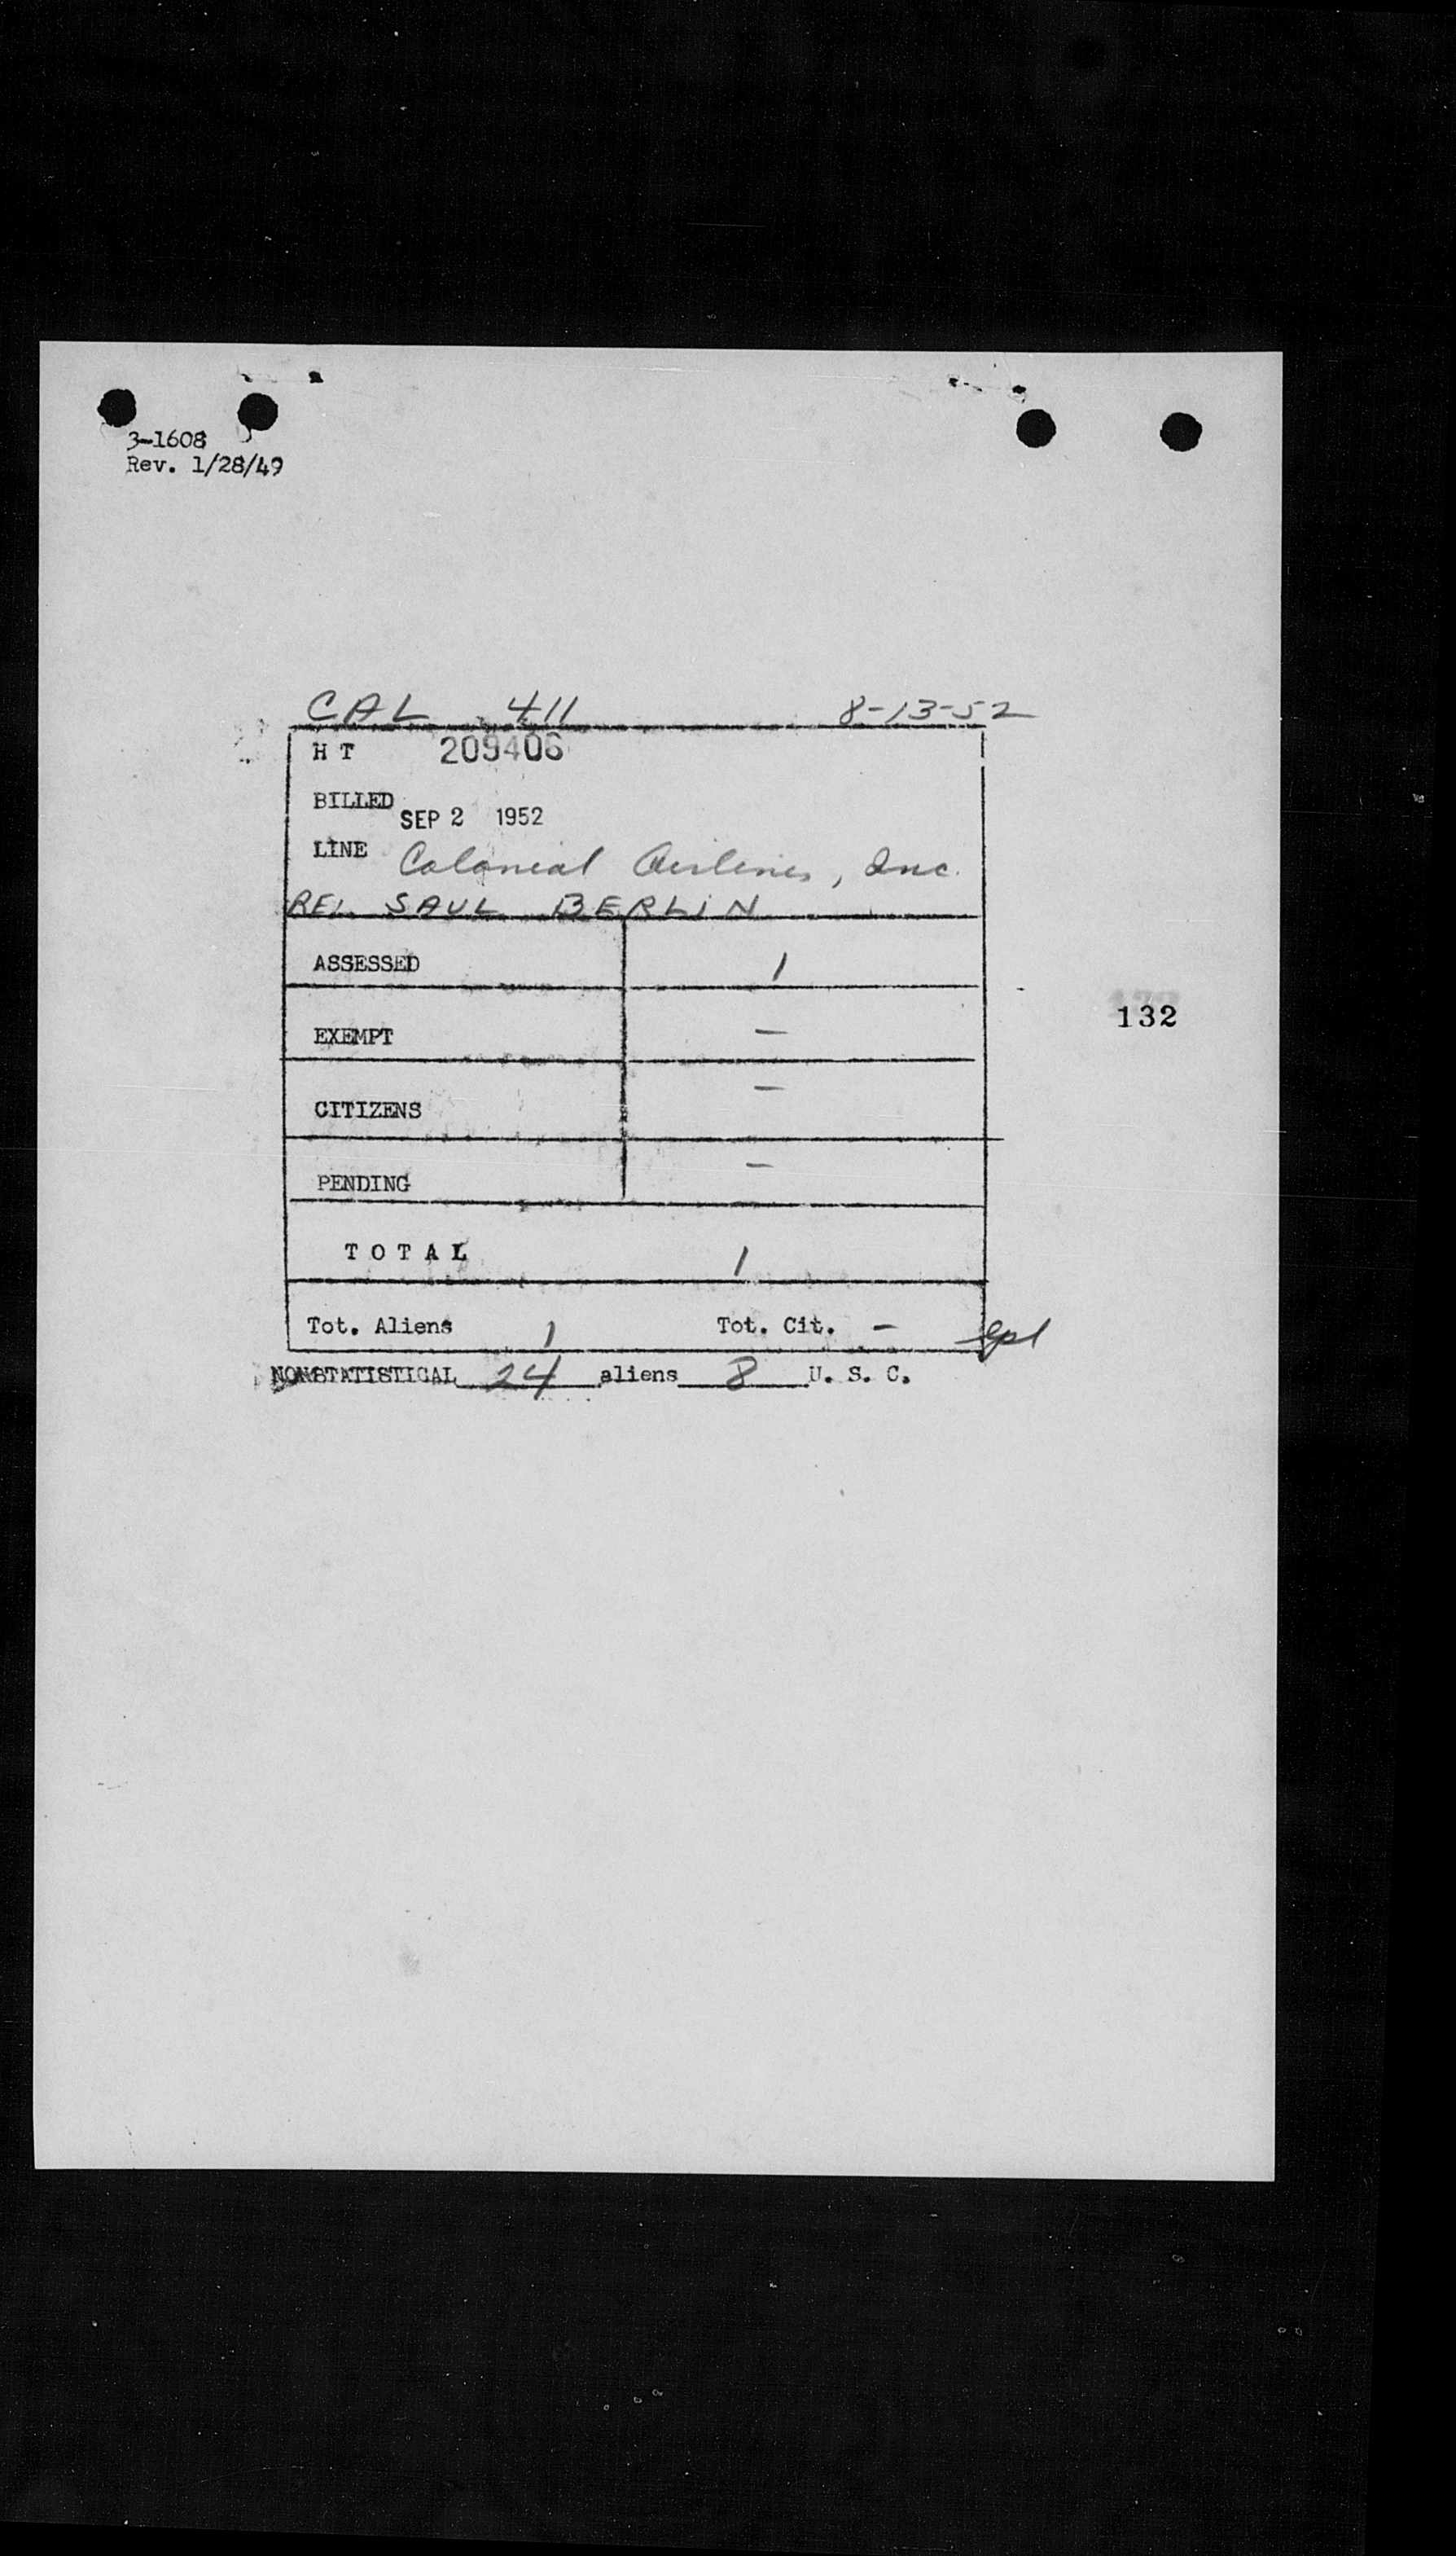 3-1608
Rev. 1/28/49
CAL 411 8-13-52
H T 209406
BILLED SEP 2 1952
LINE Colonial Airlines, Inc.
RE: SAUL BERLIN
ASSESSED 1
132
EXEMPT —
CITIZENS —
PENDING —
T O T A L 1
Tot. Aliens 1 Tot. Cit. —
NONSTATISTICAL 24 aliens 8 U. S. C.